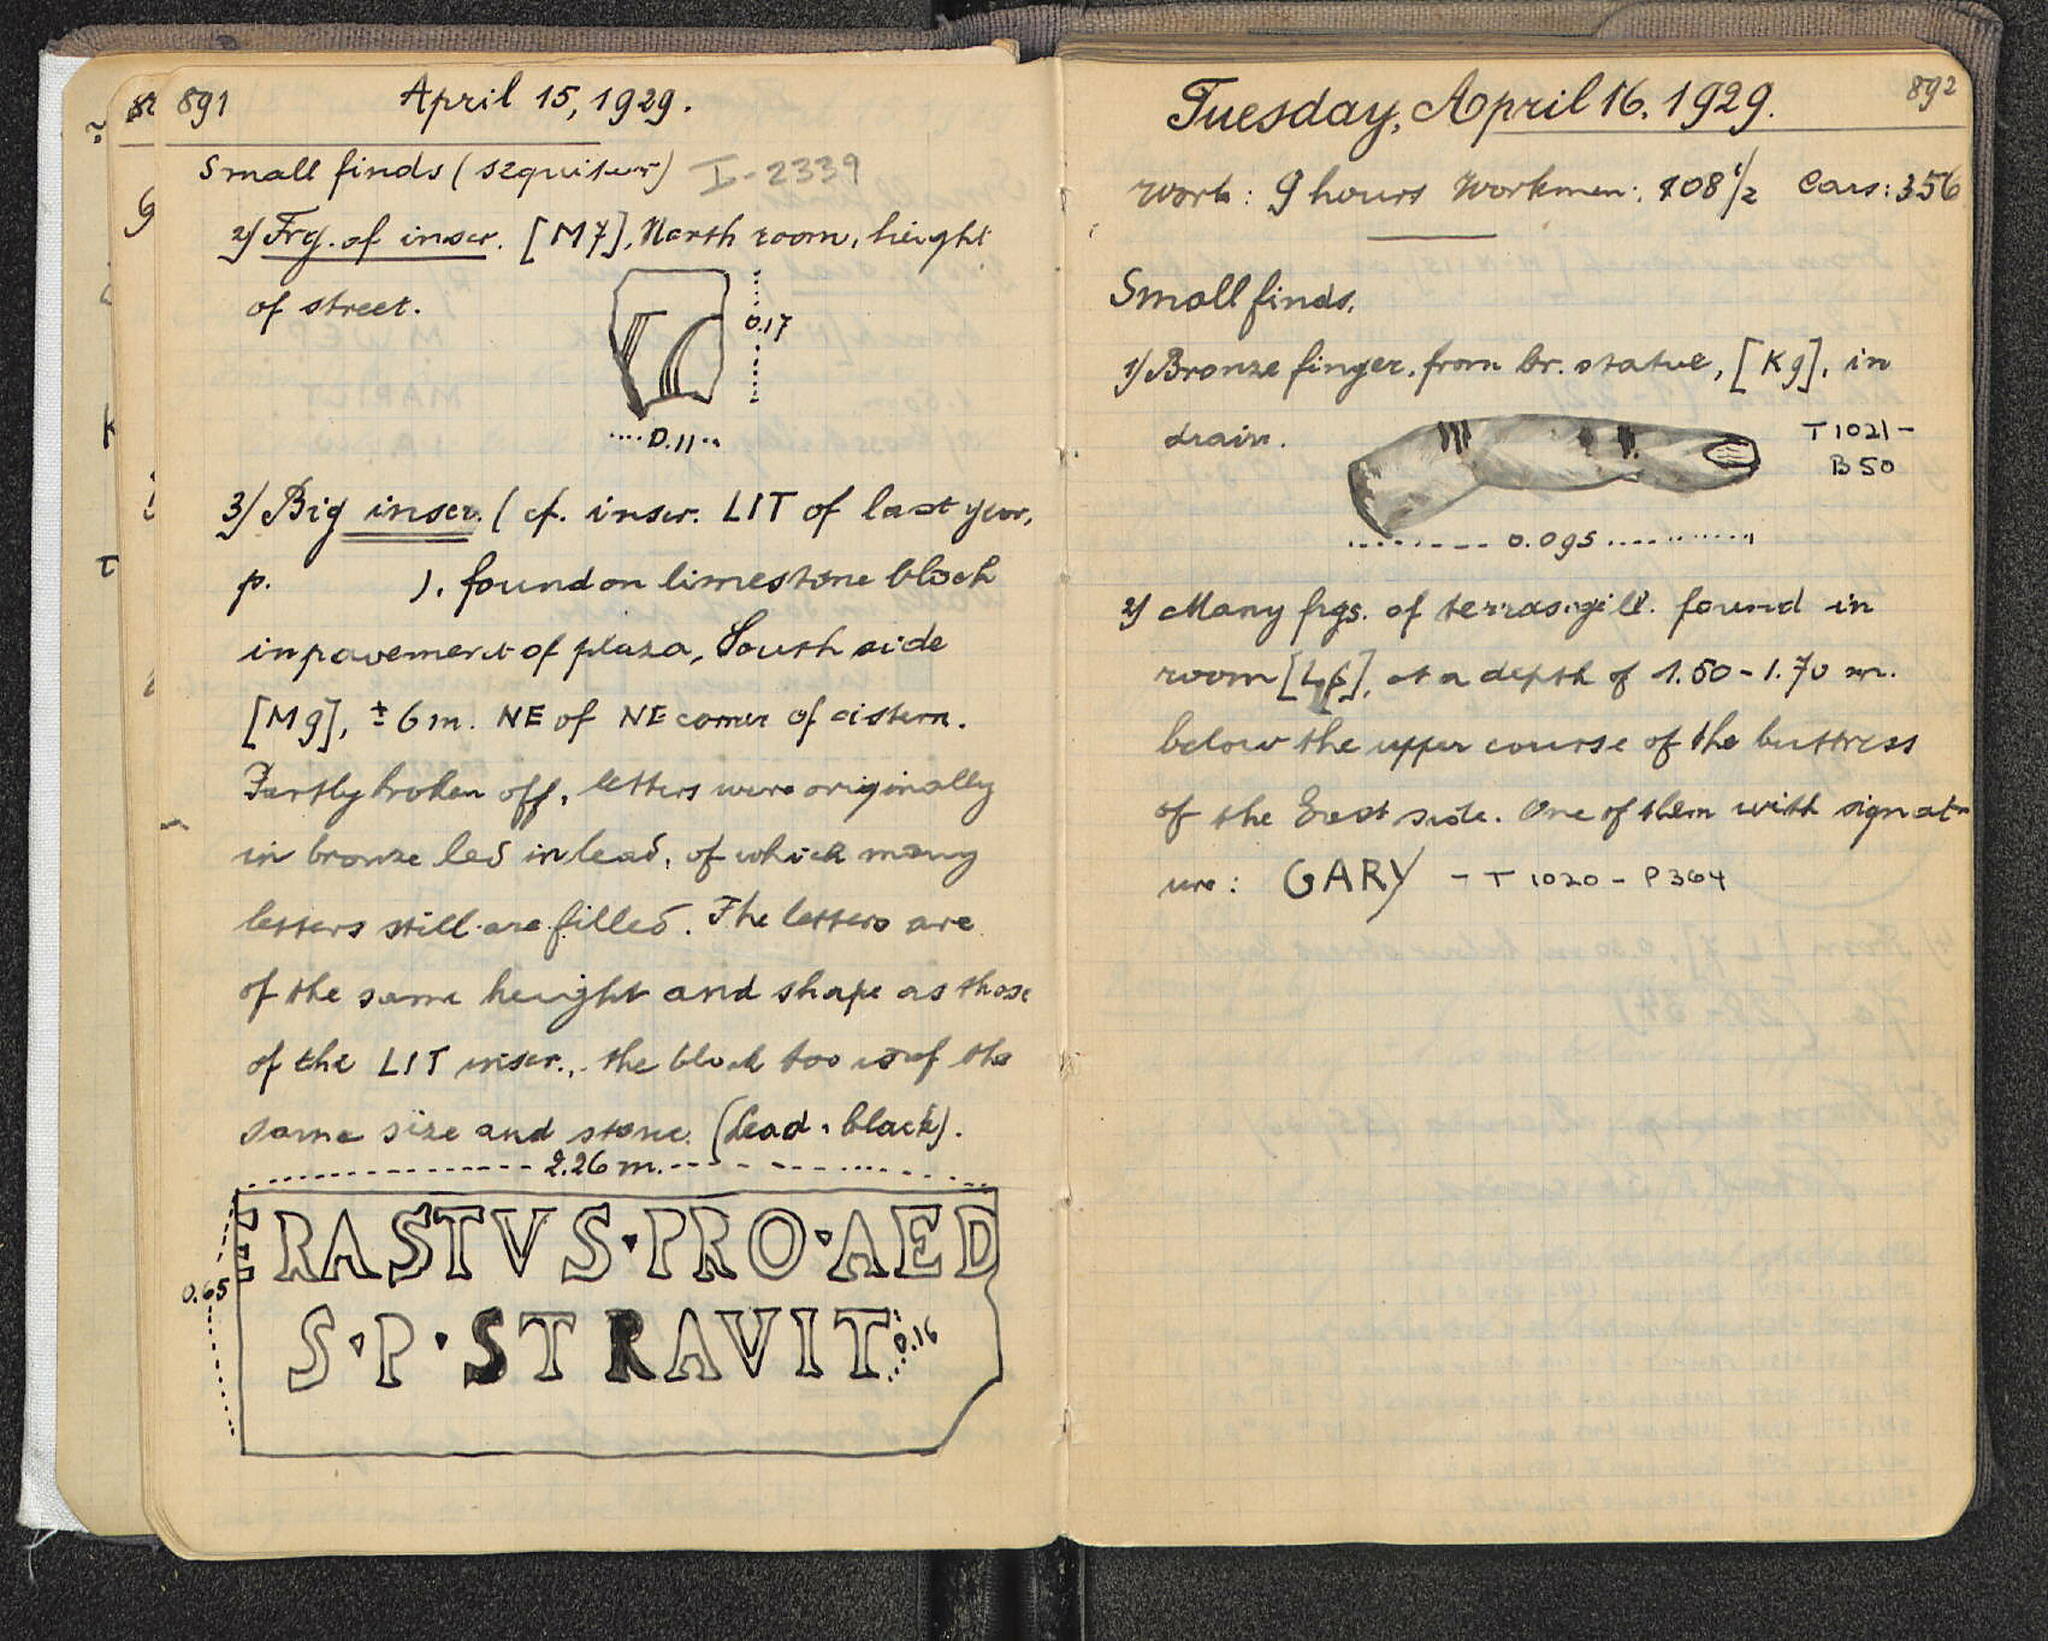 891
April 15, 1929.
Small finds (sequitur) I-2339
2) Frg. of inscr. [M7], North room, height
of street.
0.17
0.11
3) Big inscr. (cf. inscr. LIT of last year,
p. ), found on limestone block
in pavement of plaza, South side
[M9], ± 6 m. NE of NE corner of cistern.
Partly broken off, letters were originally
in bronze led in lead, of which many
letters still are filled. The letters are
of the same height and shape as those
of the LIT inscr., the block too is of the
same size and stone. (Lead = black).
2.26 m.
0.65
ERASTVS·PRO·AED
S·P·STRAVIT
0.16
892
Tuesday, April 16, 1929.
Work: 9 hours Workmen: 108 1/2 Cars: 356
Small finds.
1) Bronze finger, from br. statue, [K9], in
drain.
T 1021 -
B 50
0.095
2) Many frgs. of terra sigill. found in
room [L6], at a depth of 1.50 - 1.70 m.
below the upper course of the buttress
of the East side. One of them with signat-
ure: GARY - T 1020 - P 364